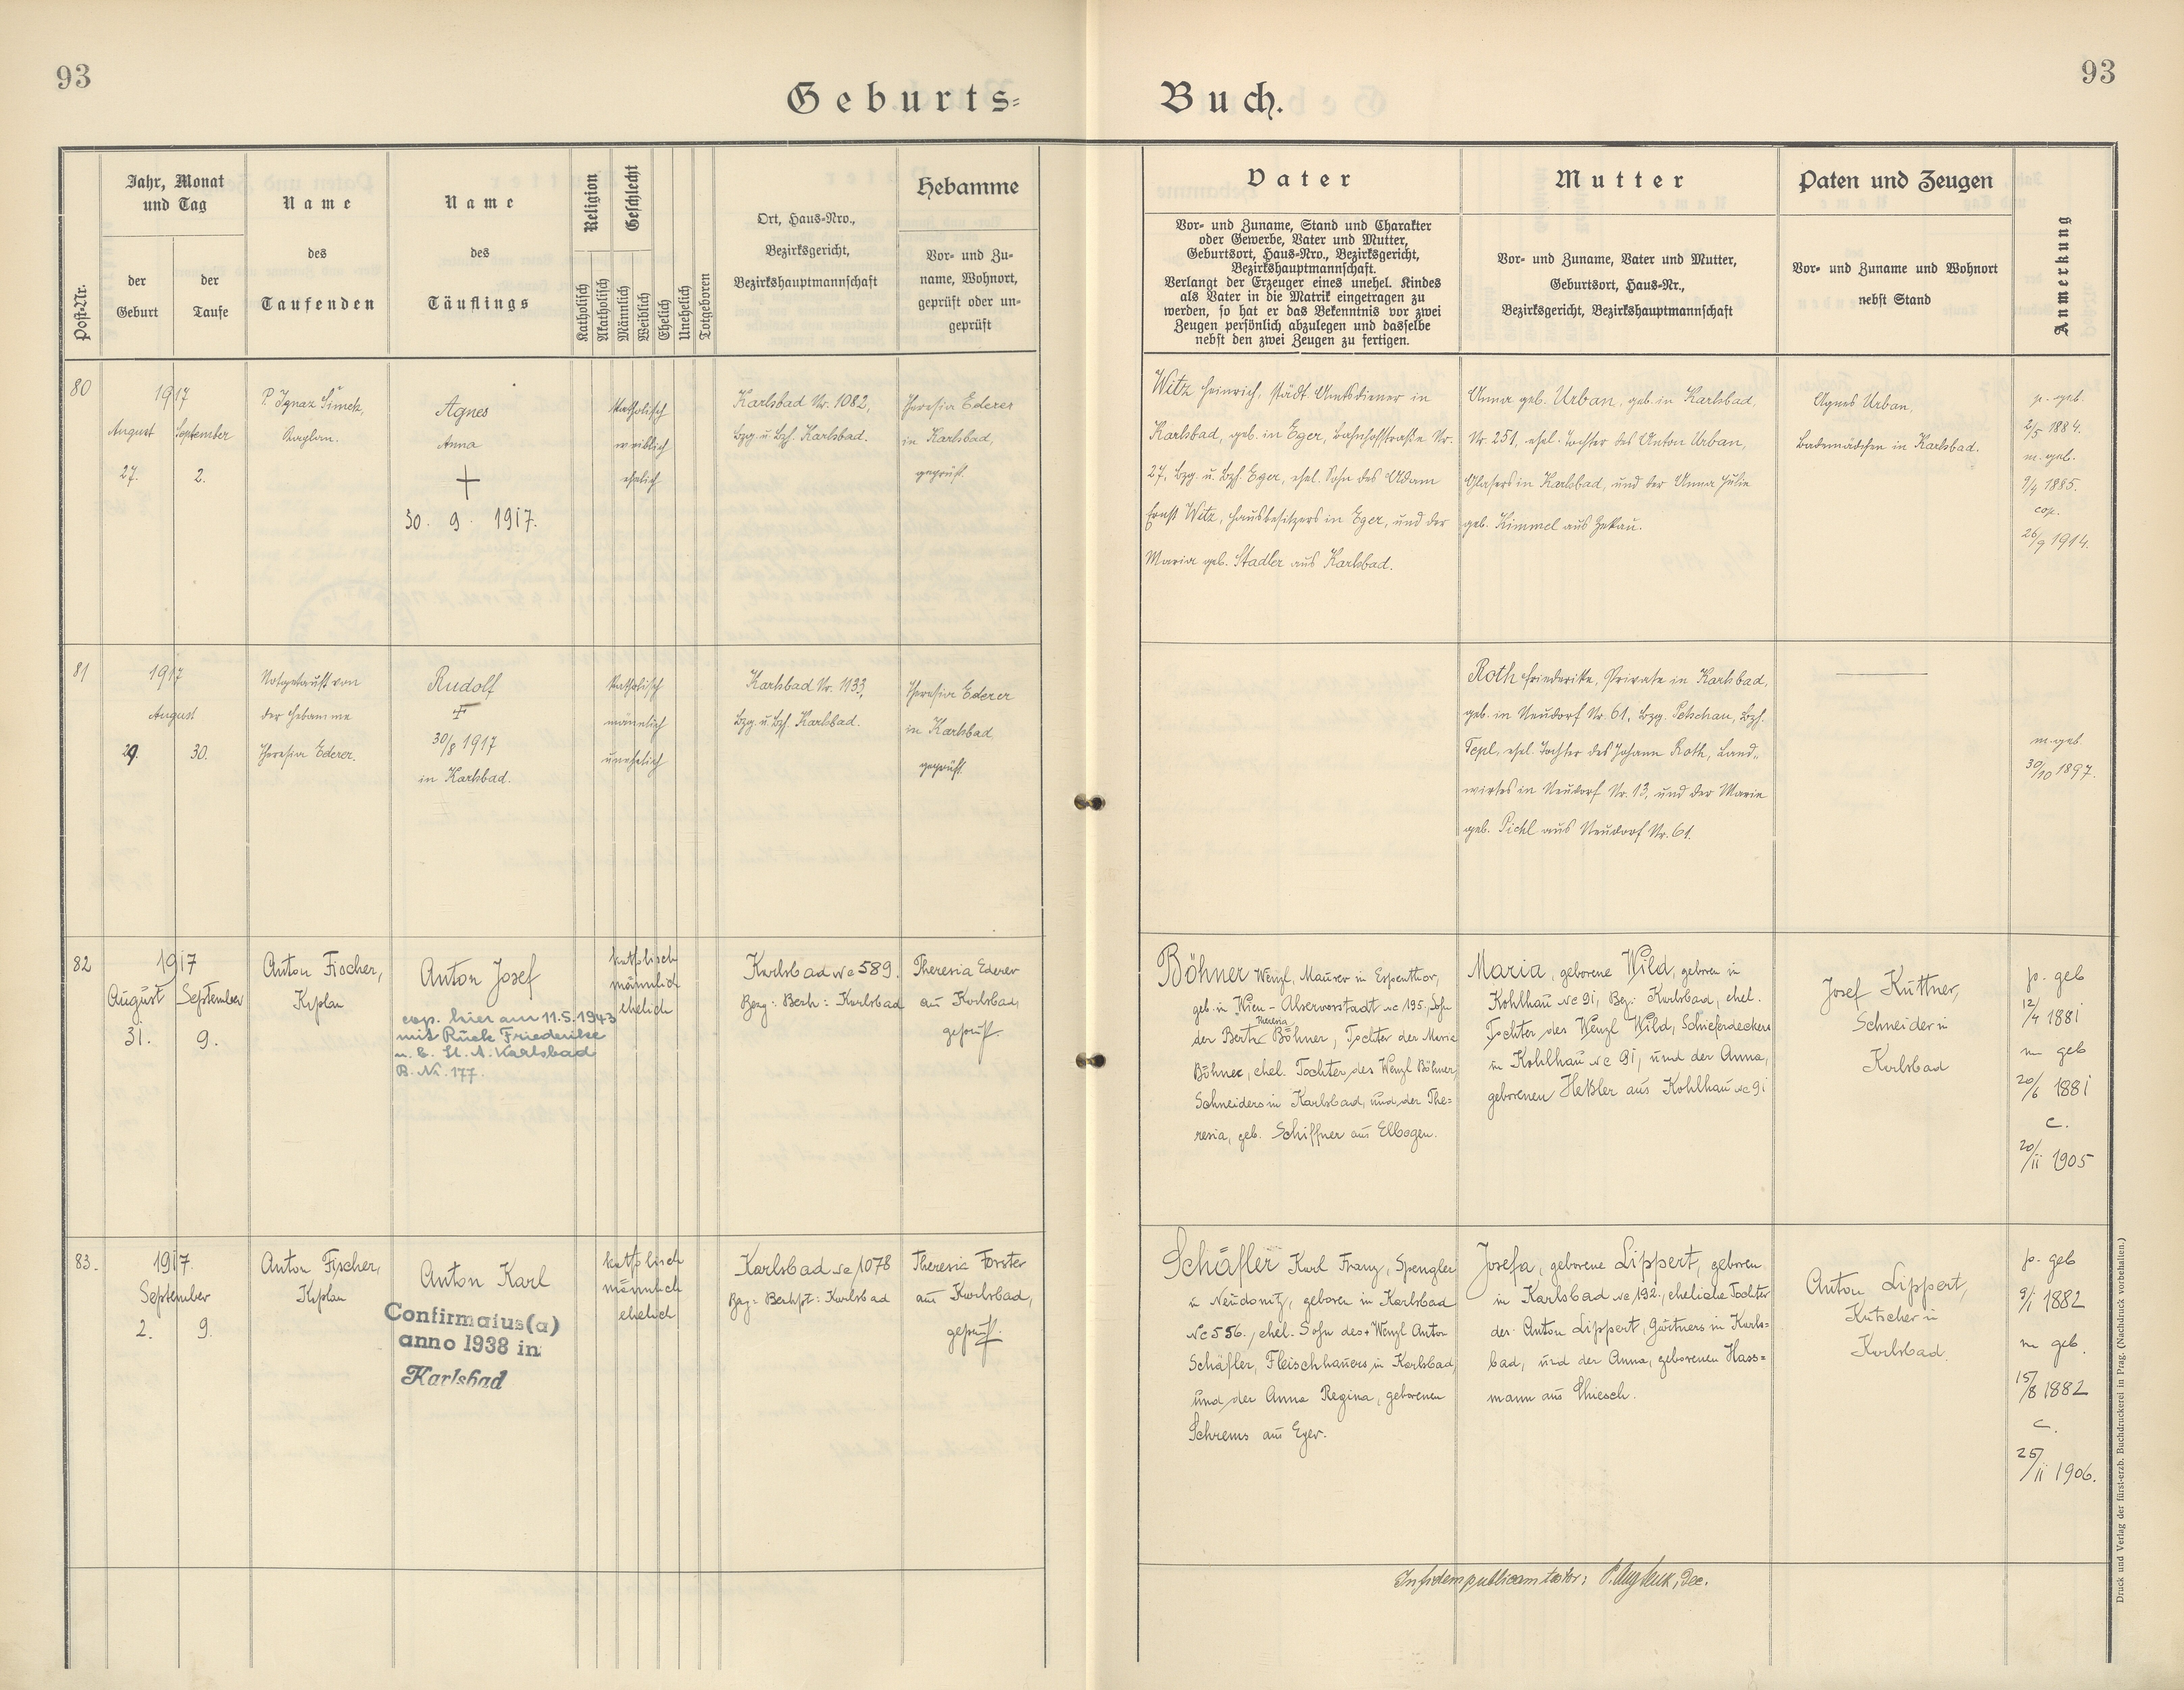 93
93
Geburts=
Buch.
Post-Nr.
Jahr, Monat
und Tag
der
Geburt
der
Taufe
Name
des
Taufenden
Name
des
Täuflings
Religion
Geschlecht
Katholisch
Akatholisch
Männlich
Weiblich
Ehelich
Unehelich
Totgeboren
Ort, Haus-Nro.,
Bezirksgericht,
Bezirkshauptmannschaft
Hebamme
Vor- und Zu-
name, Wohnort,
geprüft oder un-
geprüft
Vater
Vor- und Zuname, Stand und Charakter
oder Gewerbe, Vater und Mutter,
Geburtsort, Haus-Nro., Bezirksgericht,
Bezirkshauptmannschaft.
Verlangt der Erzeuger eines unehel. Kindes
als Vater in die Matrik eingetragen zu
werden, so hat er das Bekenntnis vor zwei
Zeugen persönlich abzulegen und dasselbe
nebst den zwei Zeugen zu fertigen.
Mutter
Vor- und Zuname, Vater und Mutter,
Geburtsort, Haus-Nr.,
Bezirksgericht, Bezirkshauptmannschaft
Paten und Zeugen
Vor- und Zuname und Wohnort
nebst Stand
Anmerkung
80
1917
August
27.
September
2.
P. Ignaz Šimek,
Kaplan.
Agnes
Anna
30. 9. 1917.
katholisch
weiblich
ehelich
Karlsbad Nr. 1082,
Bzg. u. Bzh. Karlsbad.
Theresia Ederer
in Karlsbad,
geprüft.
Witz Heinrich, städt. Amtsdiener in
Karlsbad, geb. in Eger, Bahnhofstraße Nr.
27, Bzg. u. Bzh. Eger, ehel. Sohn des Adam
Ernst Witz, Hausbesitzers in Eger, und der
Maria geb. Stadler aus Karlsbad.
Anna geb. Urban, geb. in Karlsbad,
Nr. 251, ehel. Tochter des Anton Urban,
Glasers in Karlsbad, und der Anna Julie
geb. Kimmel aus
Agnes Urban,
Bademädchen in Karlsbad.
p. geb.
2/5 1884.
m. geb.
9/4 1885.
cop.
26/9 1914.
81
1917
August
29.
30.
Notgetauft von
der Hebamme
Theresia Ederer.
Rudolf
30/8 1917
in Karlsbad.
katholisch
männlich
unehelich
Karlsbad Nr. 1133,
Bzg. u. Bzh. Karlsbad.
Theresia Ederer
in Karlsbad
geprüft.
Roth Friederike, Private in Karlsbad,
geb. in Neudorf Nr. 61, Bzg. Petschau, Bzh.
Tepl, ehel. Tochter des Johann Roth, Land-
wirtes in Neudorf Nr. 13, und der Marie
geb. Pichl aus Neudorf Nr. 61.
m. geb.
30/10 1897.
82
1917
August
31.
September
9.
Anton Fischer,
Kaplan
Anton Josef
cop. hier am 11.5.1943
mit Rück Friederike
u. E. St. A. Karlsbad
B. Nr. 177.
katholisch
männlich
ehelich
Karlsbad Nc 589.
Bezg: Bezh: Karlsbad
Theresia Ederer
aus Karlsbad,
geprüft.
Böhner Wenzl, Maurer in Espenthor,
geb. in Wien - Alservorstadt Nc 195. Sohn
der Berta Theresia Böhner, Tochter der Maria
Böhner, ehel. Tochter des Wenzl Böhner,
Schneiders in Karlsbad, und der The=
resia, geb. Schiffner aus Elbogen.
Maria, geborene Wild, geboren in
Kohlhau Nc 91, Bez: Karlsbad, ehel.
Tochter des Wenzl Wild, Schieferdeckers
in Kohlhau Nc 91, und der Anna,
geborenen Heßler aus Kohlhau Nc 91
Josef Kuttner,
Schneider in
Karlsbad
p. geb
12/4 1881
m geb
20/6 1881
c.
20/11 1905
83.
1917.
September
2.
9.
Anton Fischer,
Kaplan
Anton Karl
Confirmatus(a)
anno 1938 in
Karlsbad
katholisch
männlich
ehelich
Karlsbad Nc 1078
Bzg: Bezhpt: Karlsbad
Theresia Forster
aus Karlsbad,
geprüft.
Schäfler Karl Franz, Spengler
in Neudonitz, geboren in Karlsbad
Nc 556., ehel. Sohn des + Wenzl Anton
Schäfler, Fleischhauers in Karlsbad,
und der Anna Regina, geborenen
Schrems aus Eger.
Josefa, geborene Lippert, geboren
in Karlsbad Nc 192., eheliche Tochter
des Anton Lippert, Gärtners in Karls=
bad, und der Anna, geborenen Hass=
mann aus Chiesch.
Anton Lippert,
Kutscher in
Karlsbad.
p. geb
9/1 1882
m geb.
15/8 1882
c.
25/11 1906.
In fidem publicam testor:
Dec.
Druck und Verlag der fürst-erzb. Buchdruckerei in Prag. (Nachdruck vorbehalten.)